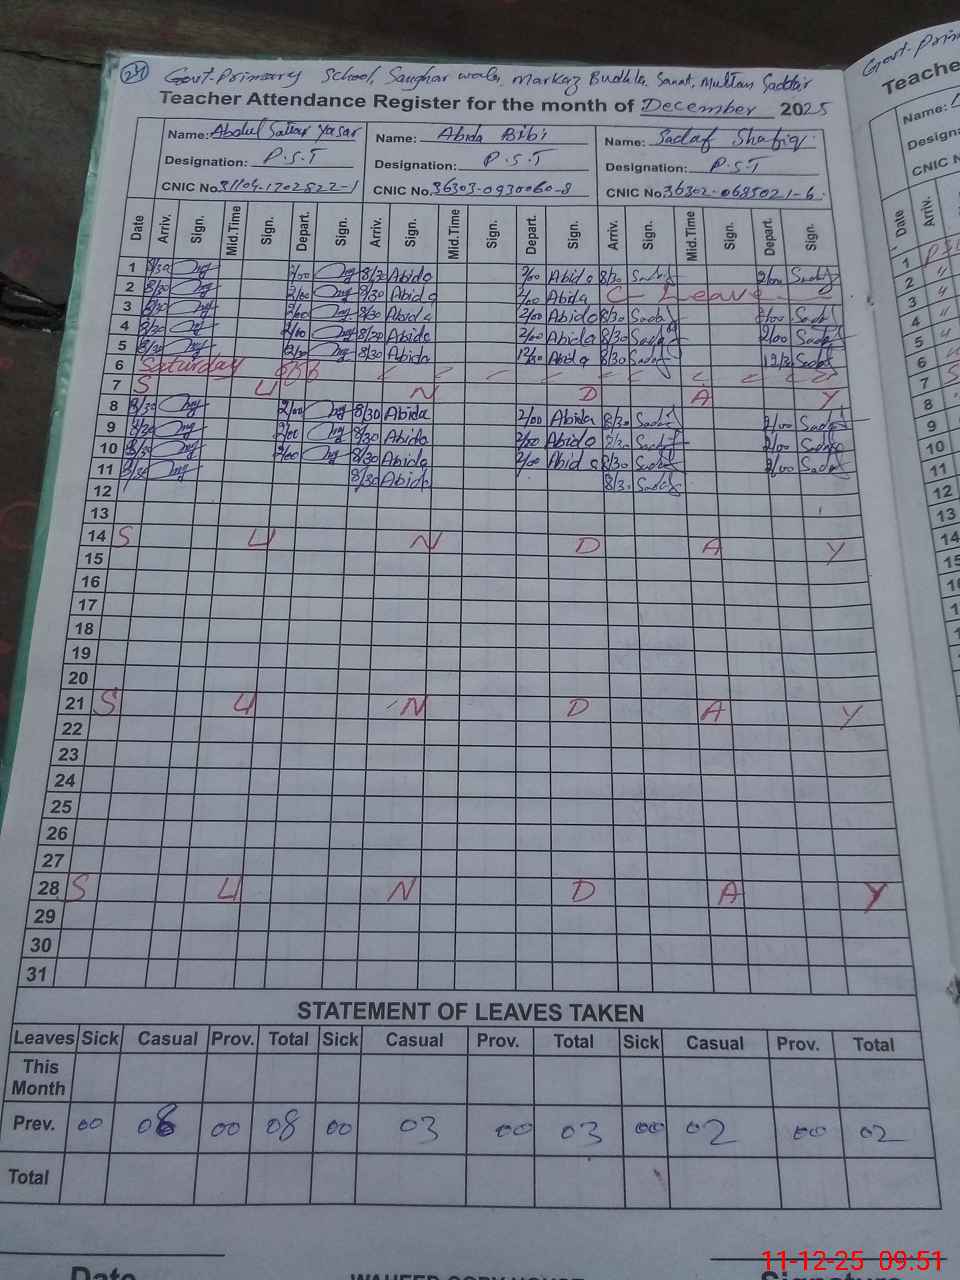 241
Govt. Primary School, Sanghar wala, Markaz Budhla Sanat, Multan Saddar
Teacher Attendance Register for the month of December 2025
Name: Abdul Sattar Yasar Name: Abida Bibi Name: Sadaf Shafiq
Designation: P.S.T Designation: P.S.T Designation: P.S.T
CNIC No. 31104-1702822-1 CNIC No. 36303-0930060-8 CNIC No. 36302-0685021-6
Date Arriv. Sign. Mid.Time Sign. Depart. Sign. Arriv. Sign. Mid.Time Sign. Depart. Sign. Arriv. Sign. Mid.Time Sign. Depart. Sign.
1 8/30 2/00 8/30 Abida 2/00 Abida 8/30 Sadaf 2/00 Sadaf
2 8/30 2/00 8/30 Abida 2/00 Abida C- Leave
3 8/30 2/00 8/30 Abida 2/00 Abida 8/30 Sadaf 2/00 Sadaf
4 8/30 2/00 8/30 Abida 2/00 Abida 8/30 Sadaf 2/00 Sadaf
5 8/30 12/30 8/30 Abida 12/30 Abida 8/30 Sadaf 12/30 Sadaf
6 Saturday
7 S U N D A Y
8 8/30 2/00 8/30 Abida 2/00 Abida 8/30 Sadaf 2/00 Sadaf
9 8/30 2/00 8/30 Abida 2/00 Abida 8/30 Sadaf 2/00 Sadaf
10 8/30 2/00 8/30 Abida 2/00 Abida 8/30 Sadaf 2/00 Sadaf
11 8/30 8/30 Abida 8/30 Sadaf
12
13
14 S U N D A Y
15
16
17
18
19
20
21 S U N D A Y
22
23
24
25
26
27
28 S U N D A Y
29
30
31
STATEMENT OF LEAVES TAKEN
Leaves Sick Casual Prov. Total Sick Casual Prov. Total Sick Casual Prov. Total
This
Month
Prev. 00 08 00 08 00 03 00 03 00 02 00 02
Total
Date
WAHEED COPY HOUSE
11-12-25 09:51
Govt. Prim
Teache
Name:
Designa
CNIC N
Date Arriv.
1
2
3
4
5
6
7
8
9
10
11
12
13
14
15